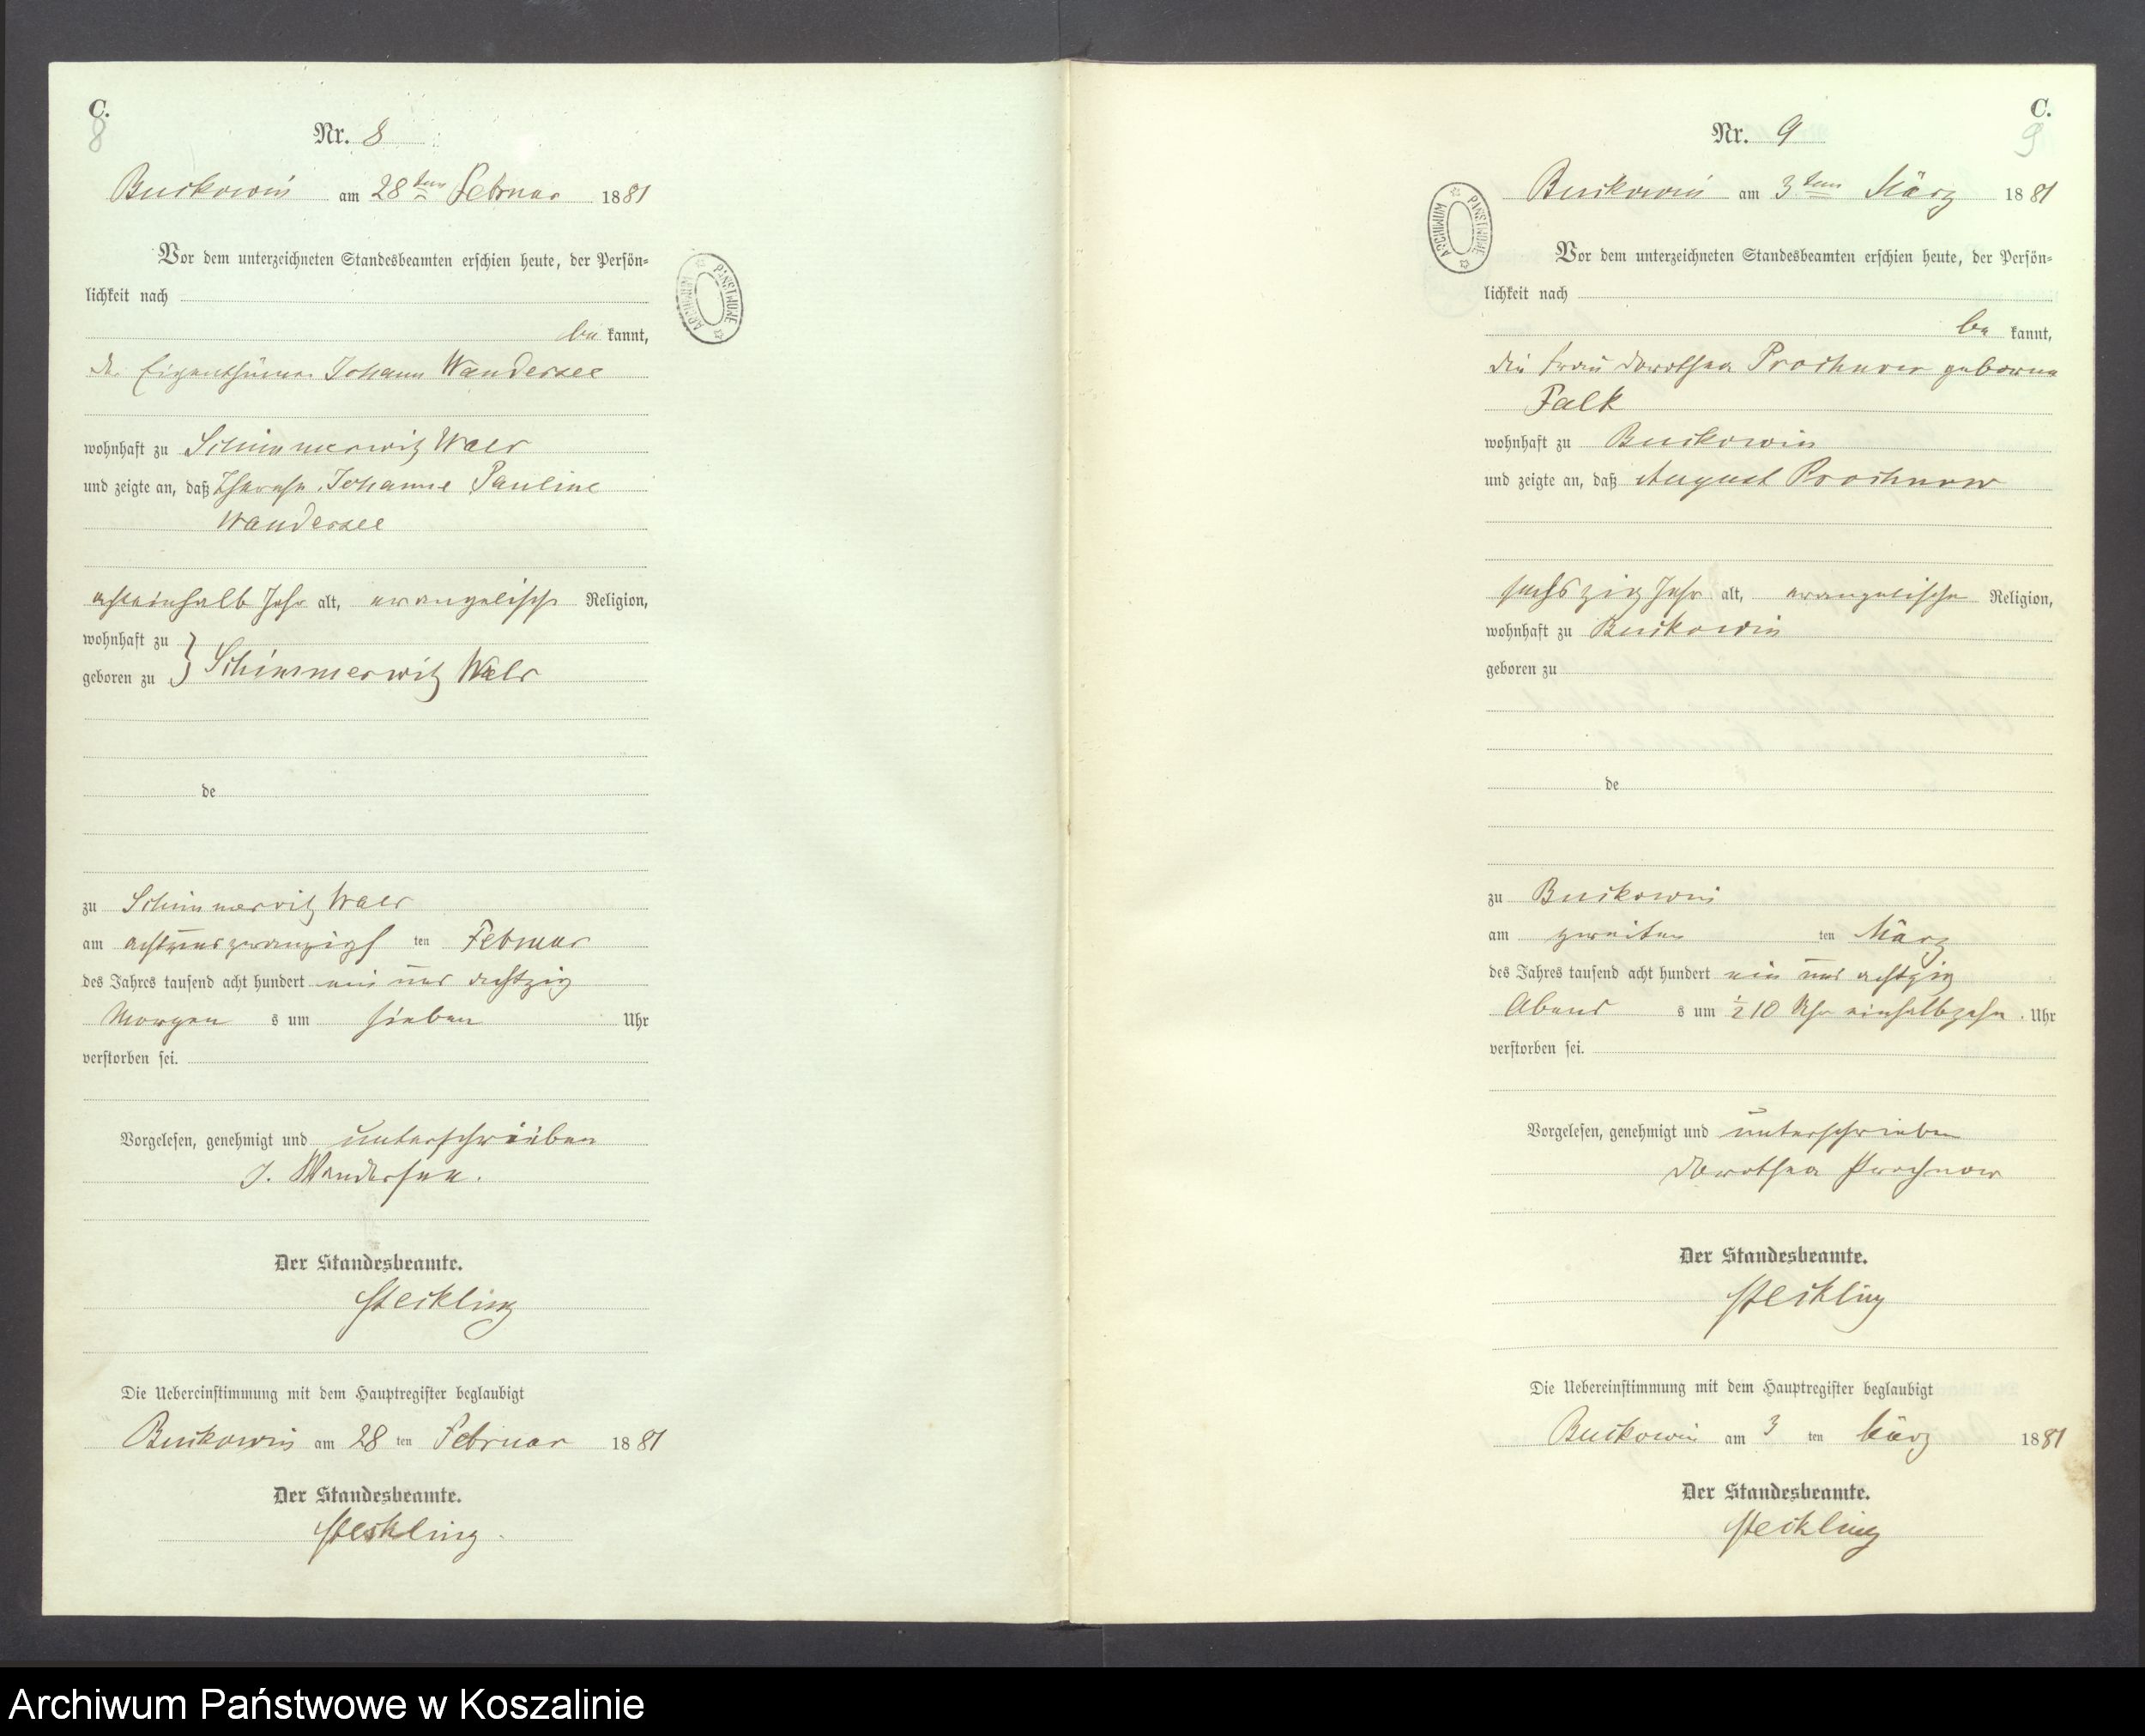 C.
8
Nr. 8
Buckowin am 28ten Februar 1881
Vor dem unterzeichneten Standesbeamten erschien heute, der Persön-
lichkeit nach
be kannt,
der Eigenthümer Johann Wandersee
wohnhaft zu Schimmerwitz Wald
und zeigte an, daß Johanne Pauline
Wandersee
Jahr alt, evangelisch Religion,
wohnhaft zu
geboren zu } Schimmerwitz Wald
de
zu Schimmerwitz Wald
am achtundzwanzigs ten Februar
des Jahres tausend acht hundert ein und achtzig
Morgen s um sieben Uhr
verstorben sei.
Vorgelesen, genehmigt und unterschrieben
J. Wandersee.
Der Standesbeamte.
Steckling
Die Uebereinstimmung mit dem Hauptregister beglaubigt
Buckowin am 28 ten Februar 1881
Der Standesbeamte.
Steckling.
ARCHIWUM PAŃSTWOWE
C.
9
Nr. 9
Buckowin am 3ten März 1881
Vor dem unterzeichneten Standesbeamten erschien heute, der Persön-
lichkeit nach
be kannt,
die Frau Dorothea Prochnow geborene
Falk
wohnhaft zu Buckowin
und zeigte an, daß August Prochnow
sechszig Jahr alt, evangelische Religion,
wohnhaft zu Buckowin
geboren zu
de
zu Buckowin
am zweiten ten März
des Jahres tausend acht hundert ein und achtzig
Abend s um ½10 Uhr einhalbzehn. Uhr
verstorben sei.
Vorgelesen, genehmigt und unterschrieben
Dorothea Prochnow
Der Standesbeamte.
Steckling
Die Uebereinstimmung mit dem Hauptregister beglaubigt
Buckowin am 3 ten März 1881
Der Standesbeamte.
Steckling
ARCHIWUM PAŃSTWOWE
Archiwum Państwowe w Koszalinie